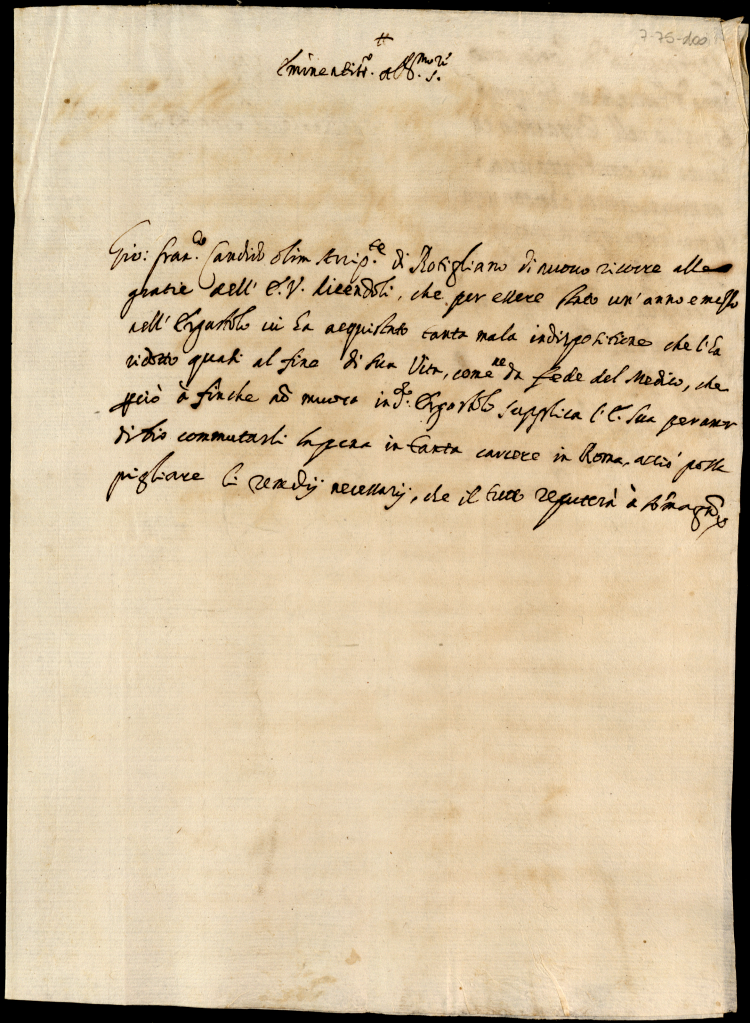 7-76-100
Eminentis.o et R.mo S.re
Gio: Fran.co Candido olim Arcip.te di Rotigliano di nuovo ricorre alle
gratie dell' E.V. dicendoli, che per essere stato un' anno e messo
nell' Ergastolo ivi ha acquistato tanta mala indispositione che l' ha
ridotto quasi al fine di sua Vita, come ne da fede del Medico, che
perciò à finche nō muora in d.o Ergastolo supplica l' E. Sua per amor
di Dio commutarli la pena in tanta carcere in Roma, acciò possa
pigliare li remedij necessarij, che il tutto reputerà à